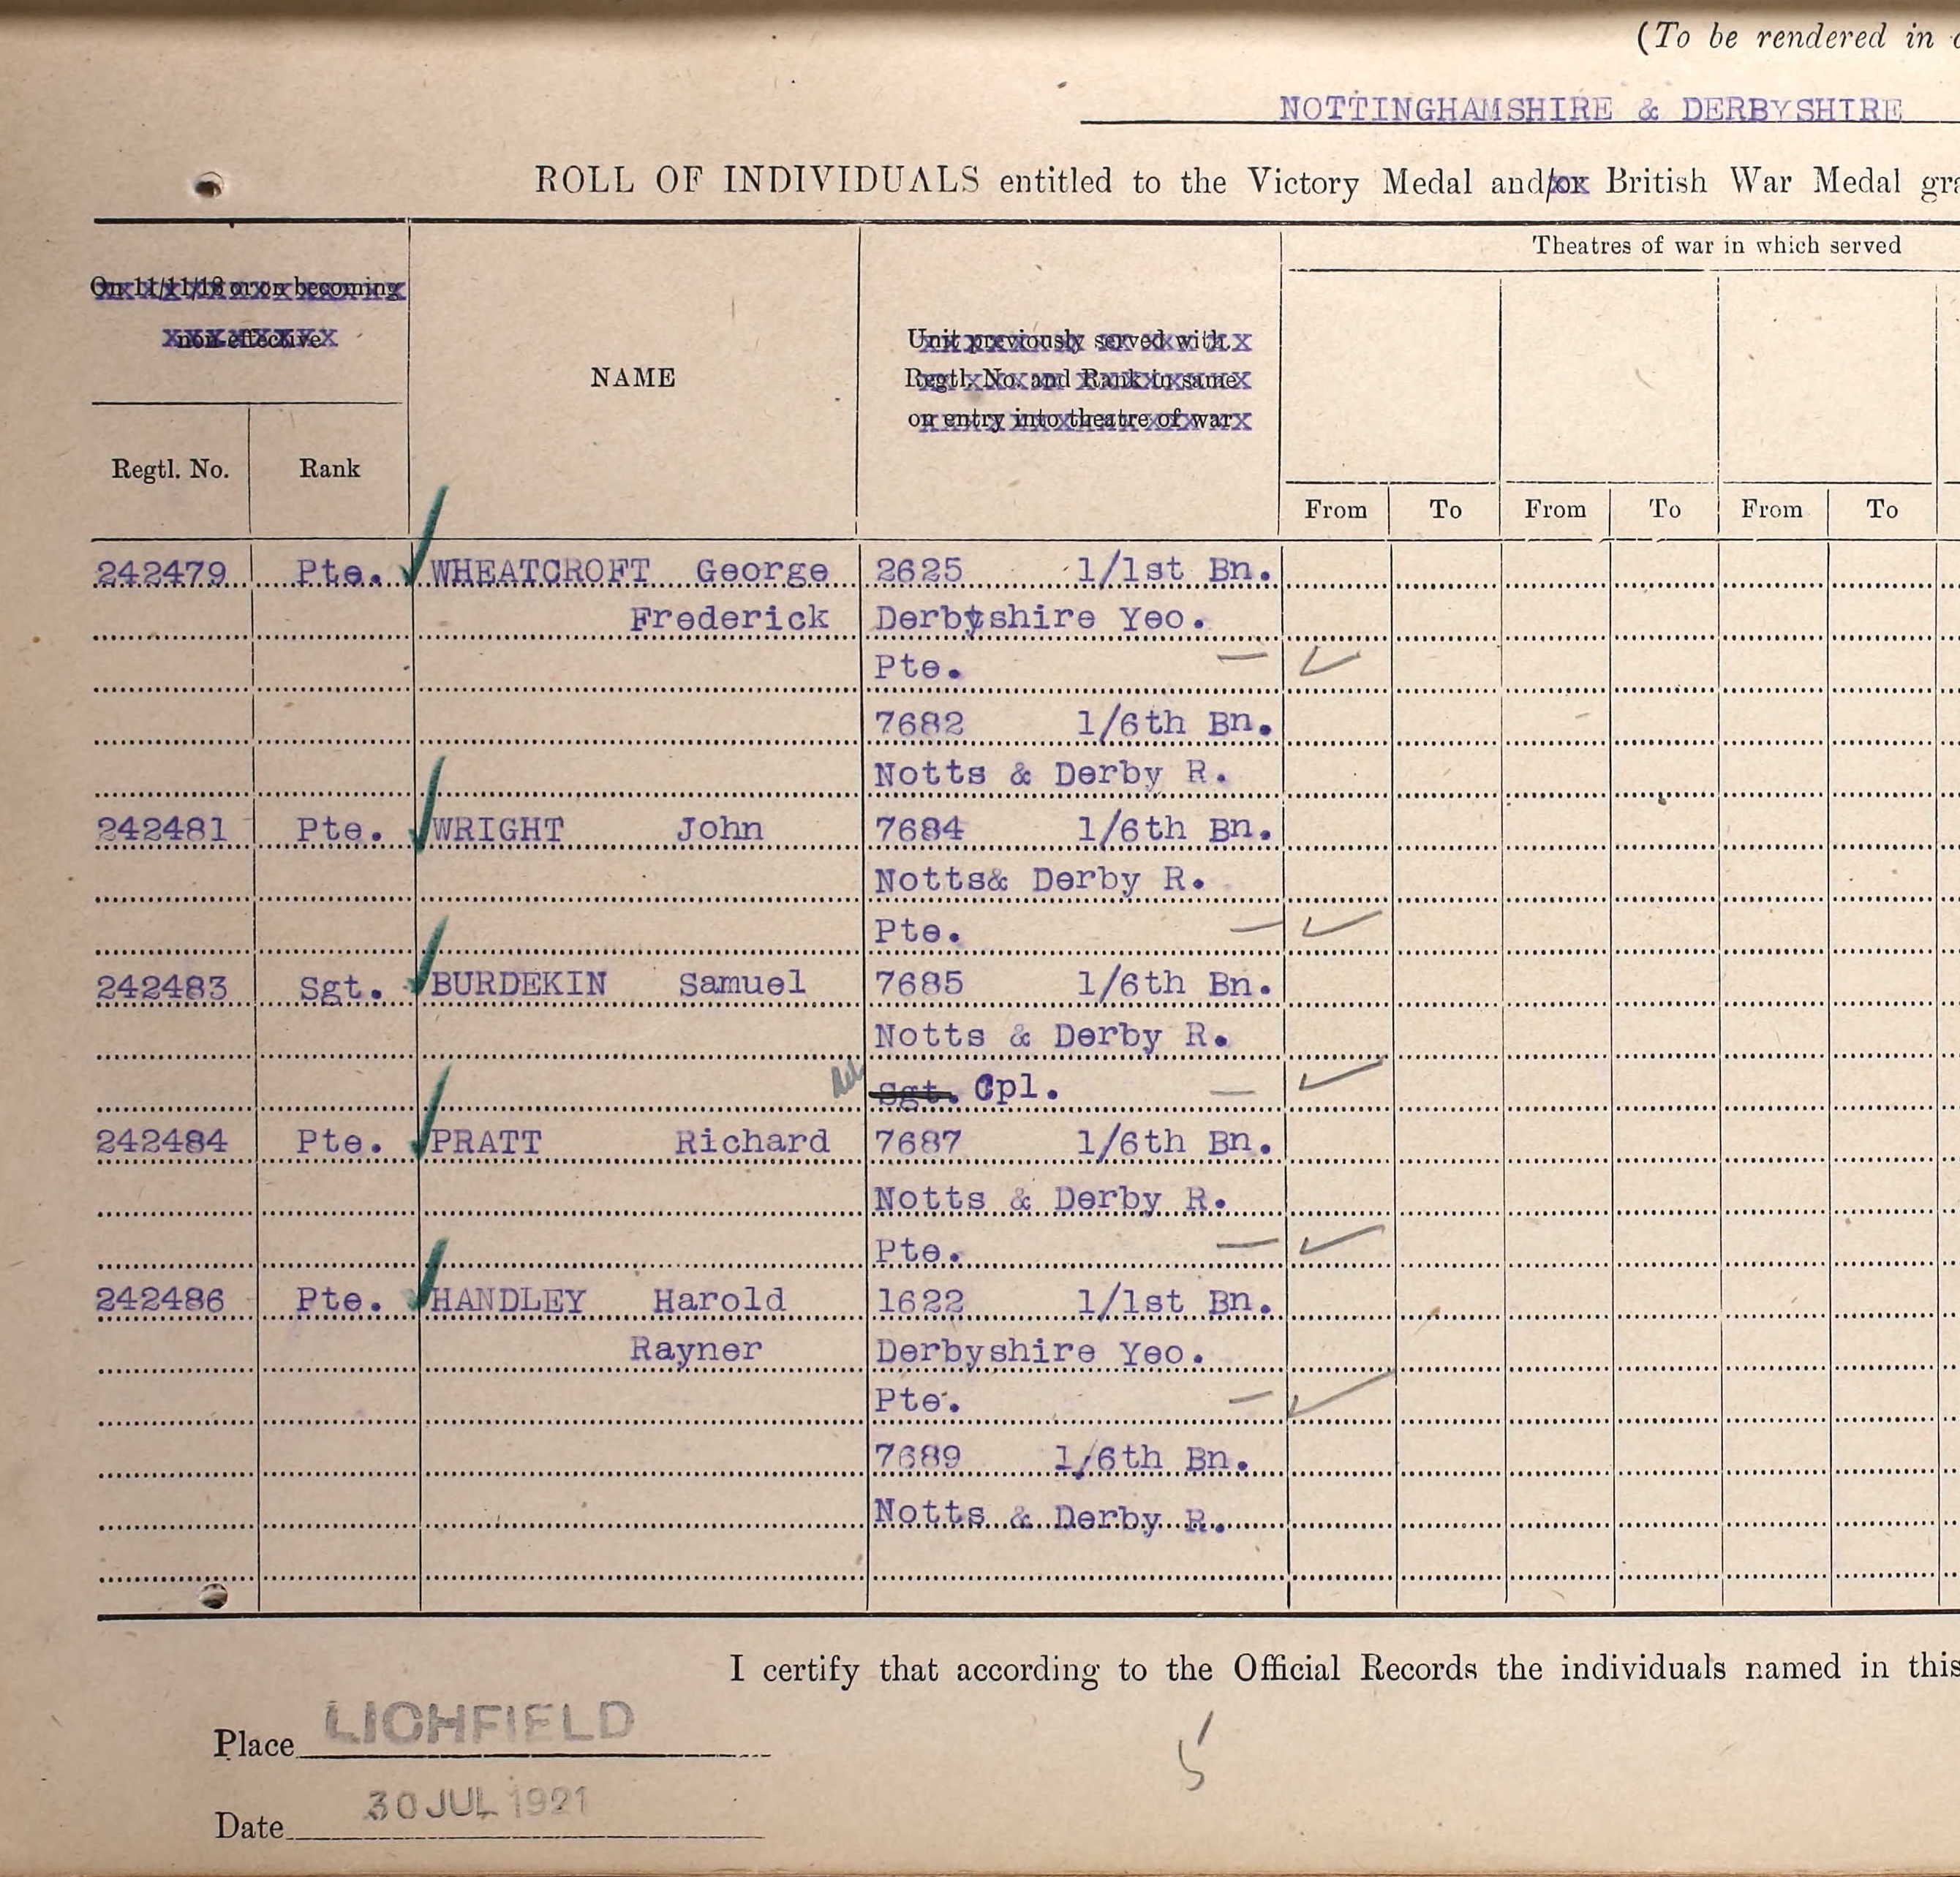 (To be rendered in
NOTTINGHAMSHIRE & DERBYSHIRE
ROLL OF INDIVIDUALS entitled to the Victory Medal and/or British War Medal gra
Theatres of war in which served
On 11/11/18 or on becoming
non-effective
NAME
Unit previously served with.
Regtl. No. and Rank in same
on entry into theatre of war
Regtl. No. Rank
From To From To From To
242479 Pte. WHEATCROFT George 2625 1/1st Bn.
Frederick Derbyshire Yeo.
Pte.
7682 1/6th Bn.
Notts & Derby R.
242481 Pte. WRIGHT John 7684 1/6th Bn.
Notts& Derby R.
Pte.
242483 Sgt. BURDEKIN Samuel 7685 1/6th Bn.
Notts & Derby R.
Sgt. Cpl.
242484 Pte. PRATT Richard 7687 1/6th Bn.
Notts & Derby R.
Pte.
242486 Pte. HANDLEY Harold 1622 1/1st Bn.
Rayner Derbyshire Yeo.
Pte.
7689 1/6th Bn.
Notts & Derby R.
I certify that according to the Official Records the individuals named in this
Place LICHFIELD
5
Date 30 JUL 1921